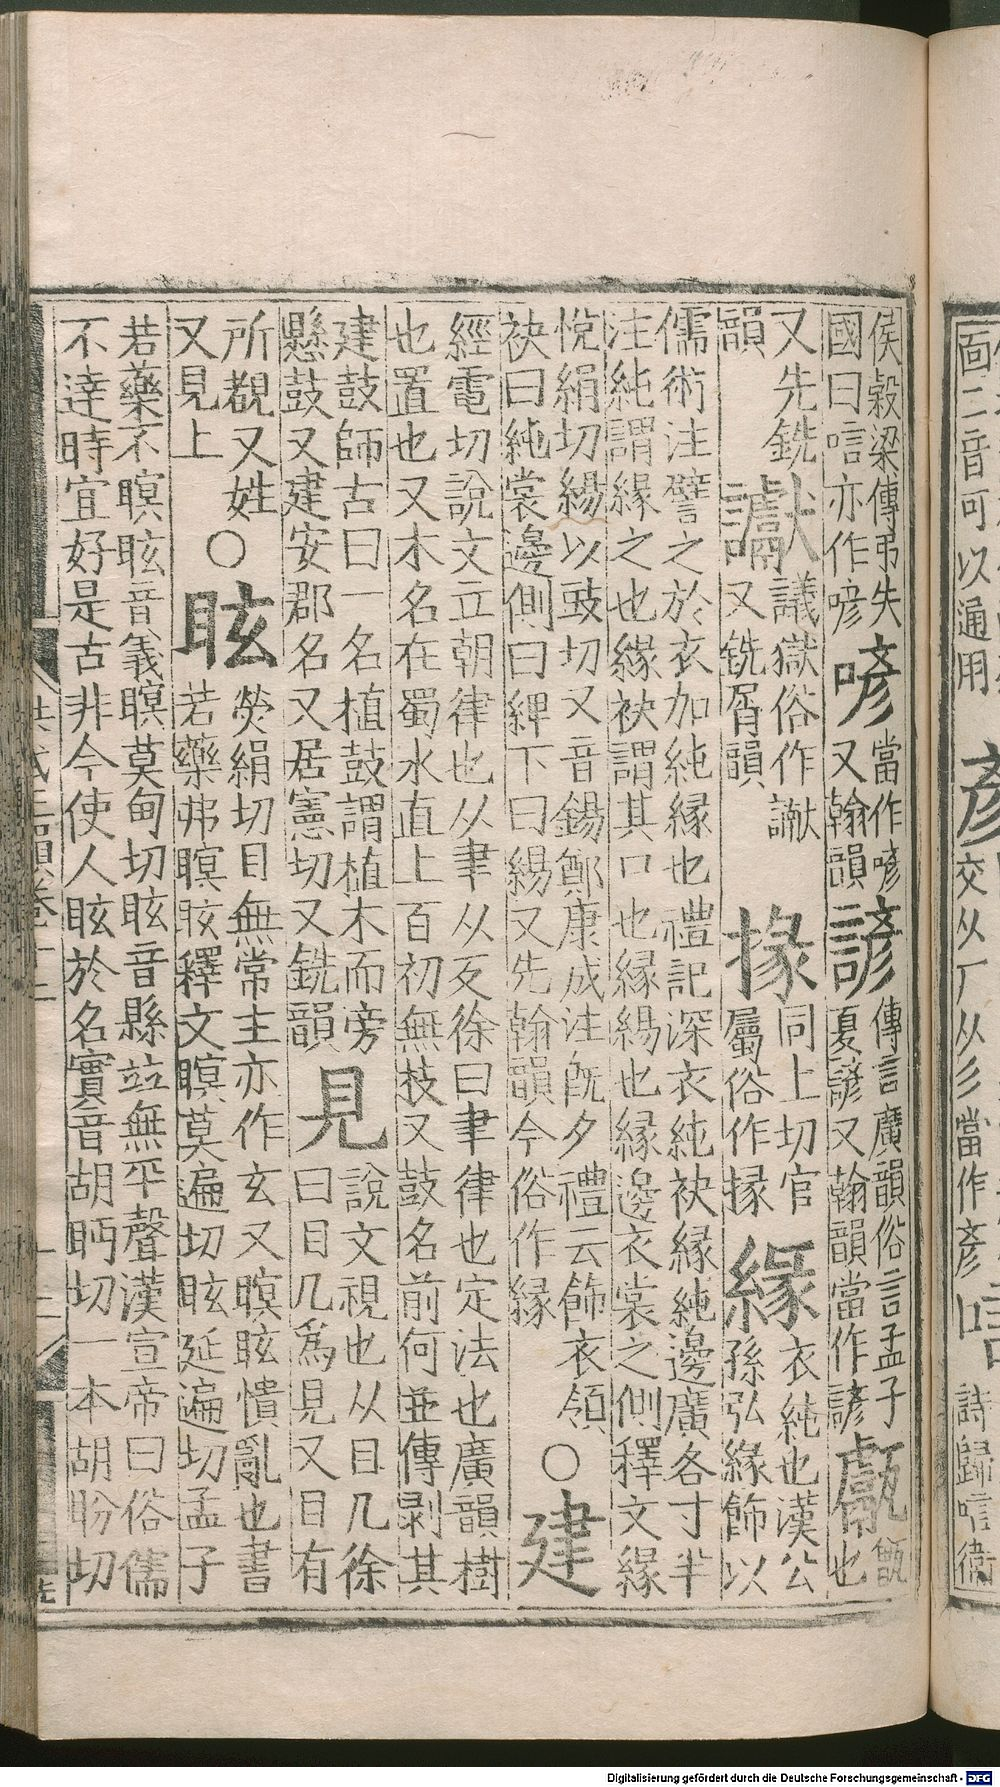 侯穀梁傳弔失
國曰唁亦作喭
喭
當作喭
又翰韻
諺
傳言廣韻俗言孟子
夏諺又翰韻當作諺
甗
甑
也
又先銑
韻
讞
議獄俗作讞
又銑屑韻
掾
同上切官
屬俗作掾
緣
衣純也漢公
孫弘緣飾以
儒術注譬之於衣加純緣也禮記深衣純袂緣純邊廣各寸半
注純謂緣之也緣袂謂其口也緣緆也緣邊衣裳之側釋文緣
悅絹切緆以豉切又音錫鄭康成注旣夕禮云飾衣領
袂曰純裳邊側曰綼下曰緆又先翰韻今俗作縁
○
建
經電切說文立朝律也从聿从廴徐曰聿律也定法也廣韻樹
也置也又木名在蜀水直上百初無枝又鼓名前何並傳剥其
建鼓師古曰一名植鼓謂植木而旁
懸鼓又建安郡名又居憲切又銑韻
見
說文視也从目几徐
曰目几爲見又目有
所覩又姓
又見上
○
眩
熒絹切目無常主亦作玄又瞑眩憒亂也書
若藥弗瞑眩釋文瞑莫遍切眩延遍切孟子
若藥不瞑眩音義瞑莫甸切眩音縣竝無平聲漢宣帝曰俗儒
不達時宜好是古非今使人眩於名實音胡眄切一本胡盼切
洪武正韻卷十二
十二
面二音可以通用
彥
交从厂从彡當作彥
唁
詩歸唁衞
Digitalisierung gefördert durch die Deutsche Forschungsgemeinschaft - DFG